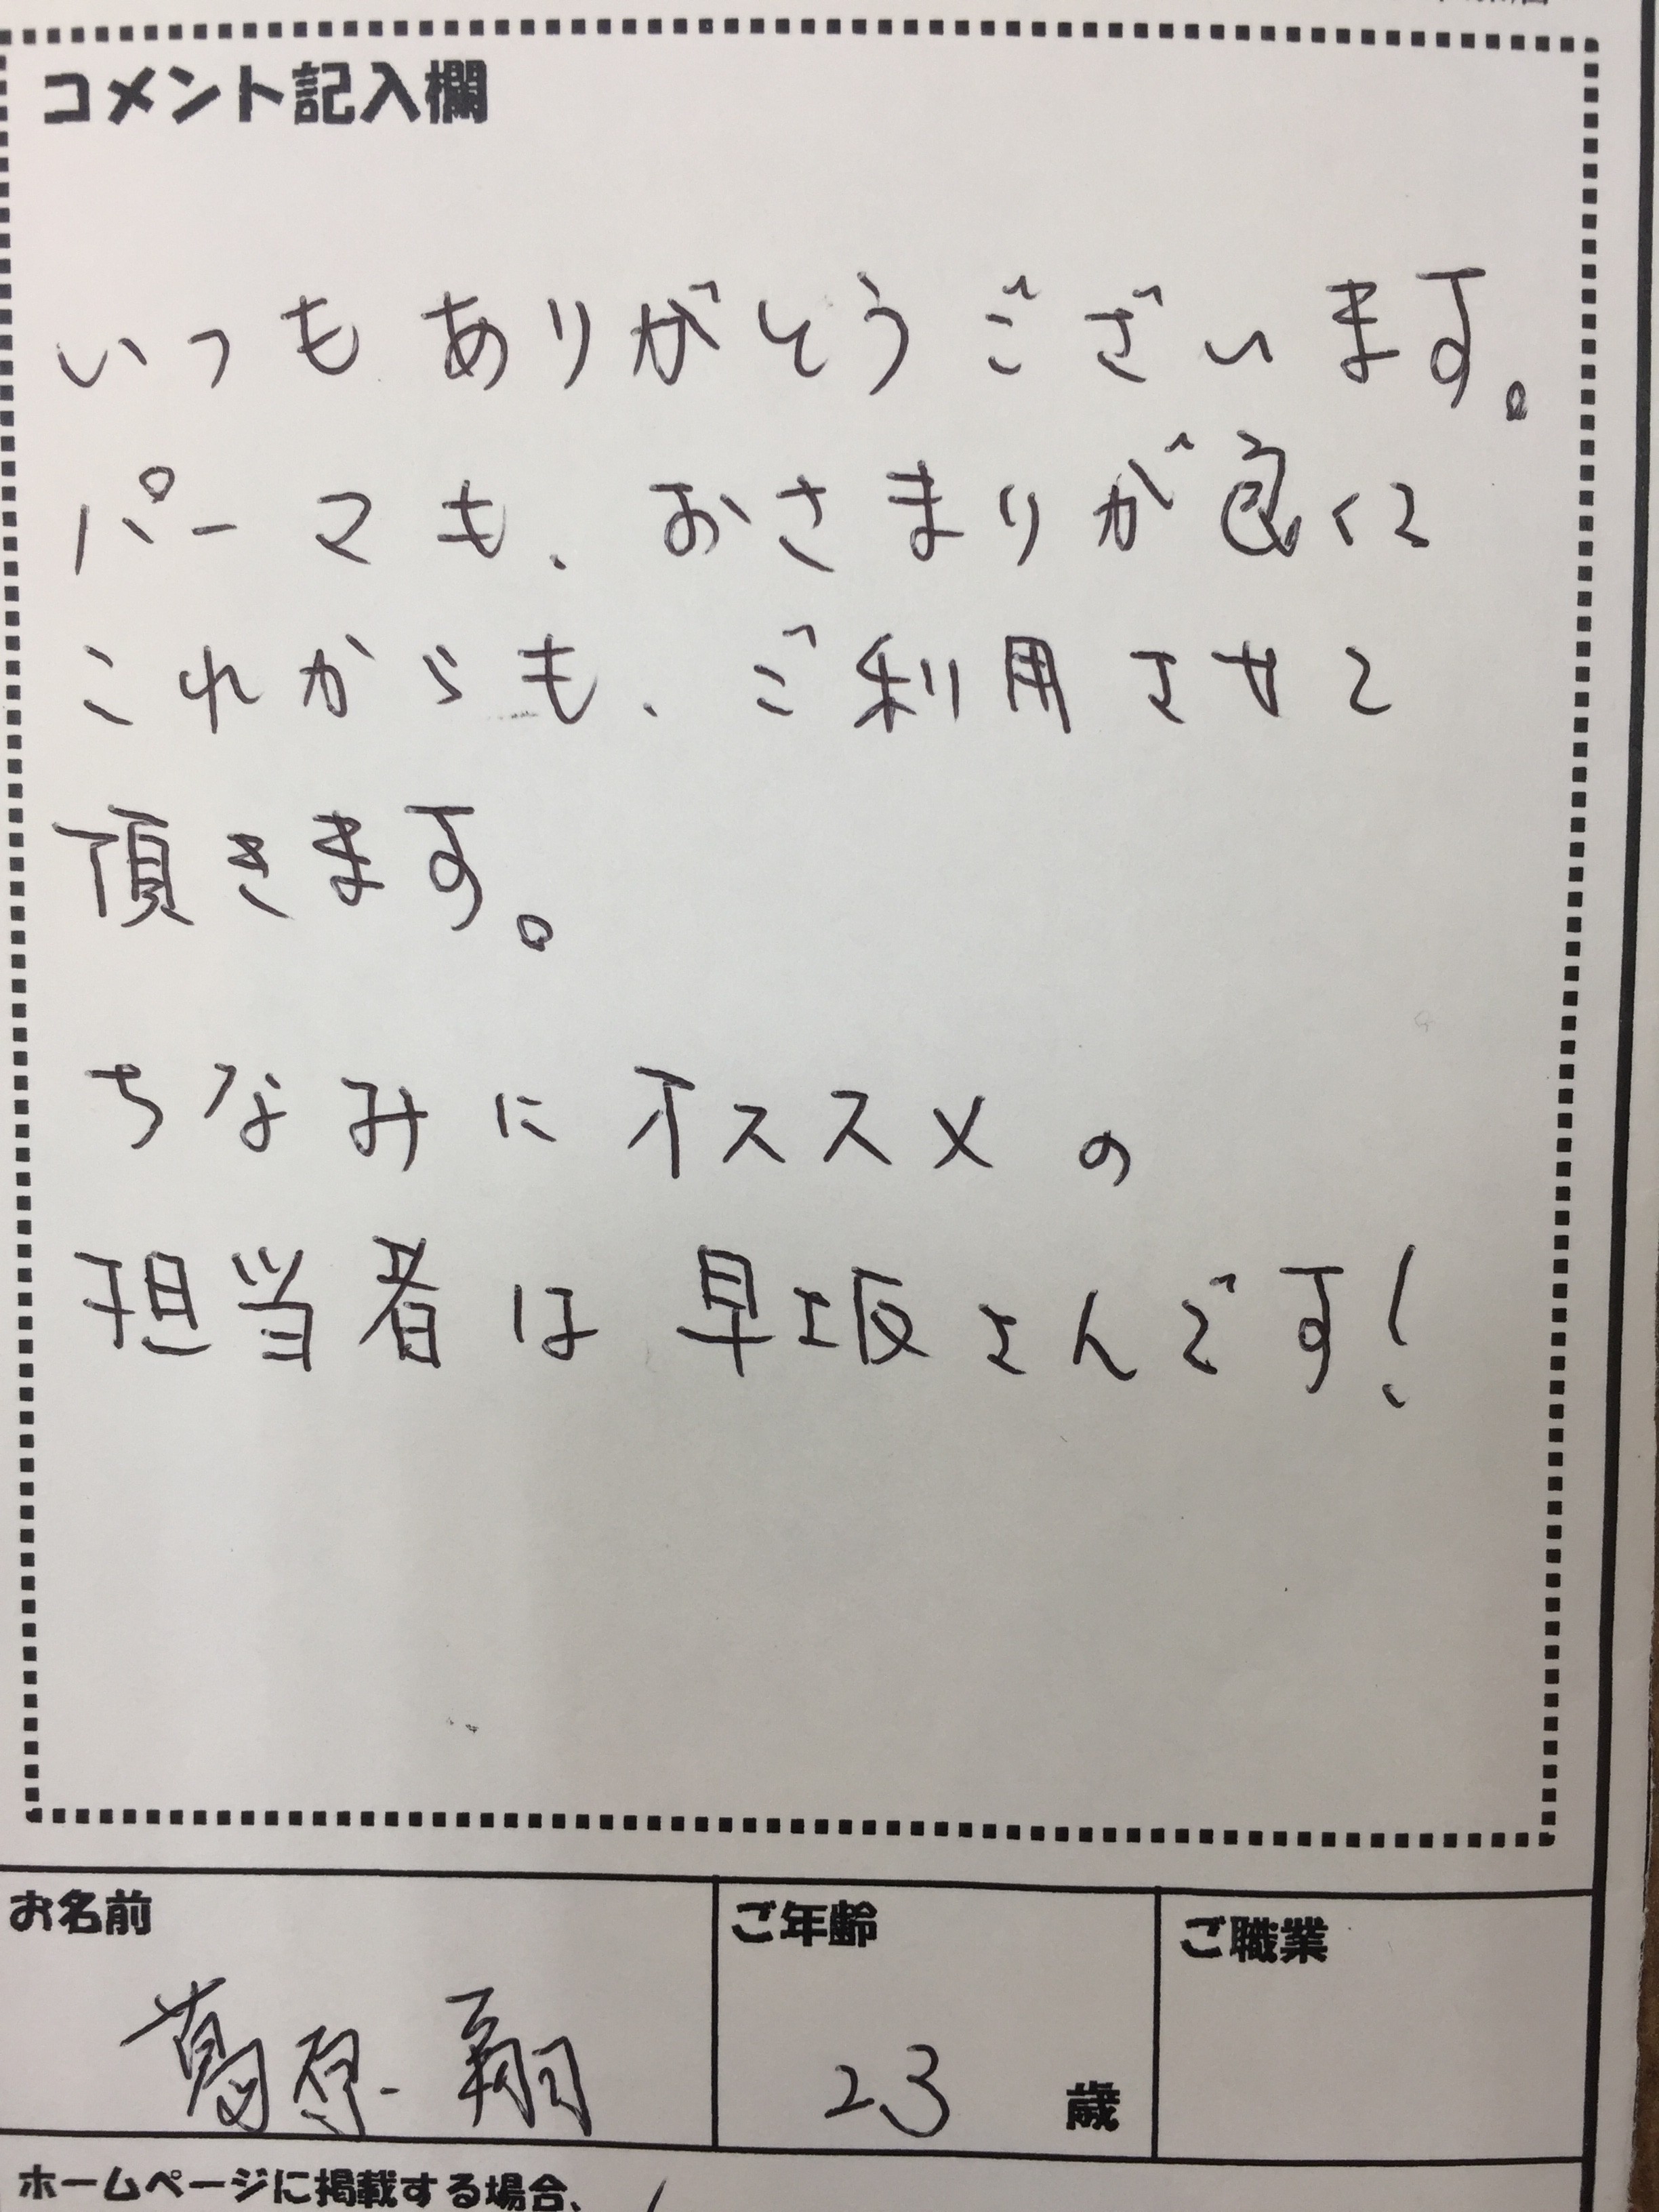 コメント記入欄
いつもありがとうございます。
パーマも、おさまりが良くて
これからも、ご利用させて
頂きます。
ちなみにオススメの
担当者は早坂さんです!
お名前 ご年齢 ご職業
葛原 翔 23 歳
ホームページに掲載する場合、